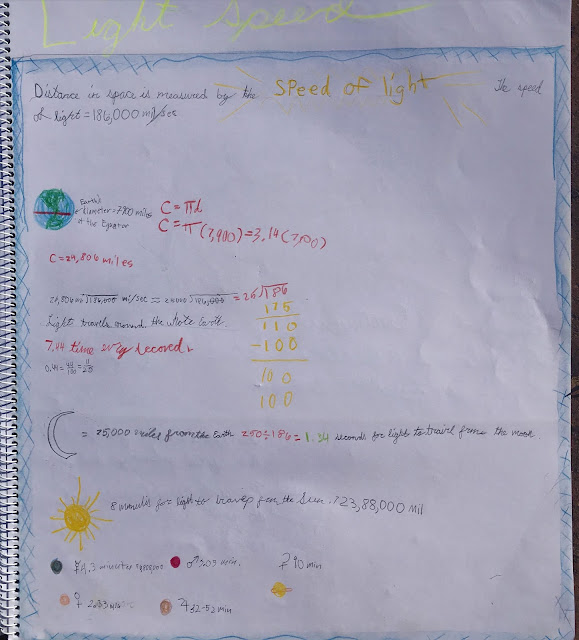 Light Speed
Distance in space is measured by the Speed of light The speed
of light = 186,000 mil/sec
Earth's
diameter = 7,900 miles
at the Equator
C = πd
C = π(7,900) = 3.14(7,900)
C = 24,806 miles
186,000 mil/sec ≈ = 25√186
175
110
-100
100
100
Light travels around the whole Earth.
7.44 time every second.
0.44 = 44/100 = 11/25
= 25,000 miles from the Earth 250÷186 = 1.34 seconds for light to travel from the moon
8 minutes for light to from the Sun. 223,88,000 Mil
4.3 minutes
♂ 3.03 min.
90 min
♀ 2.33 min
♃ 32-52 min